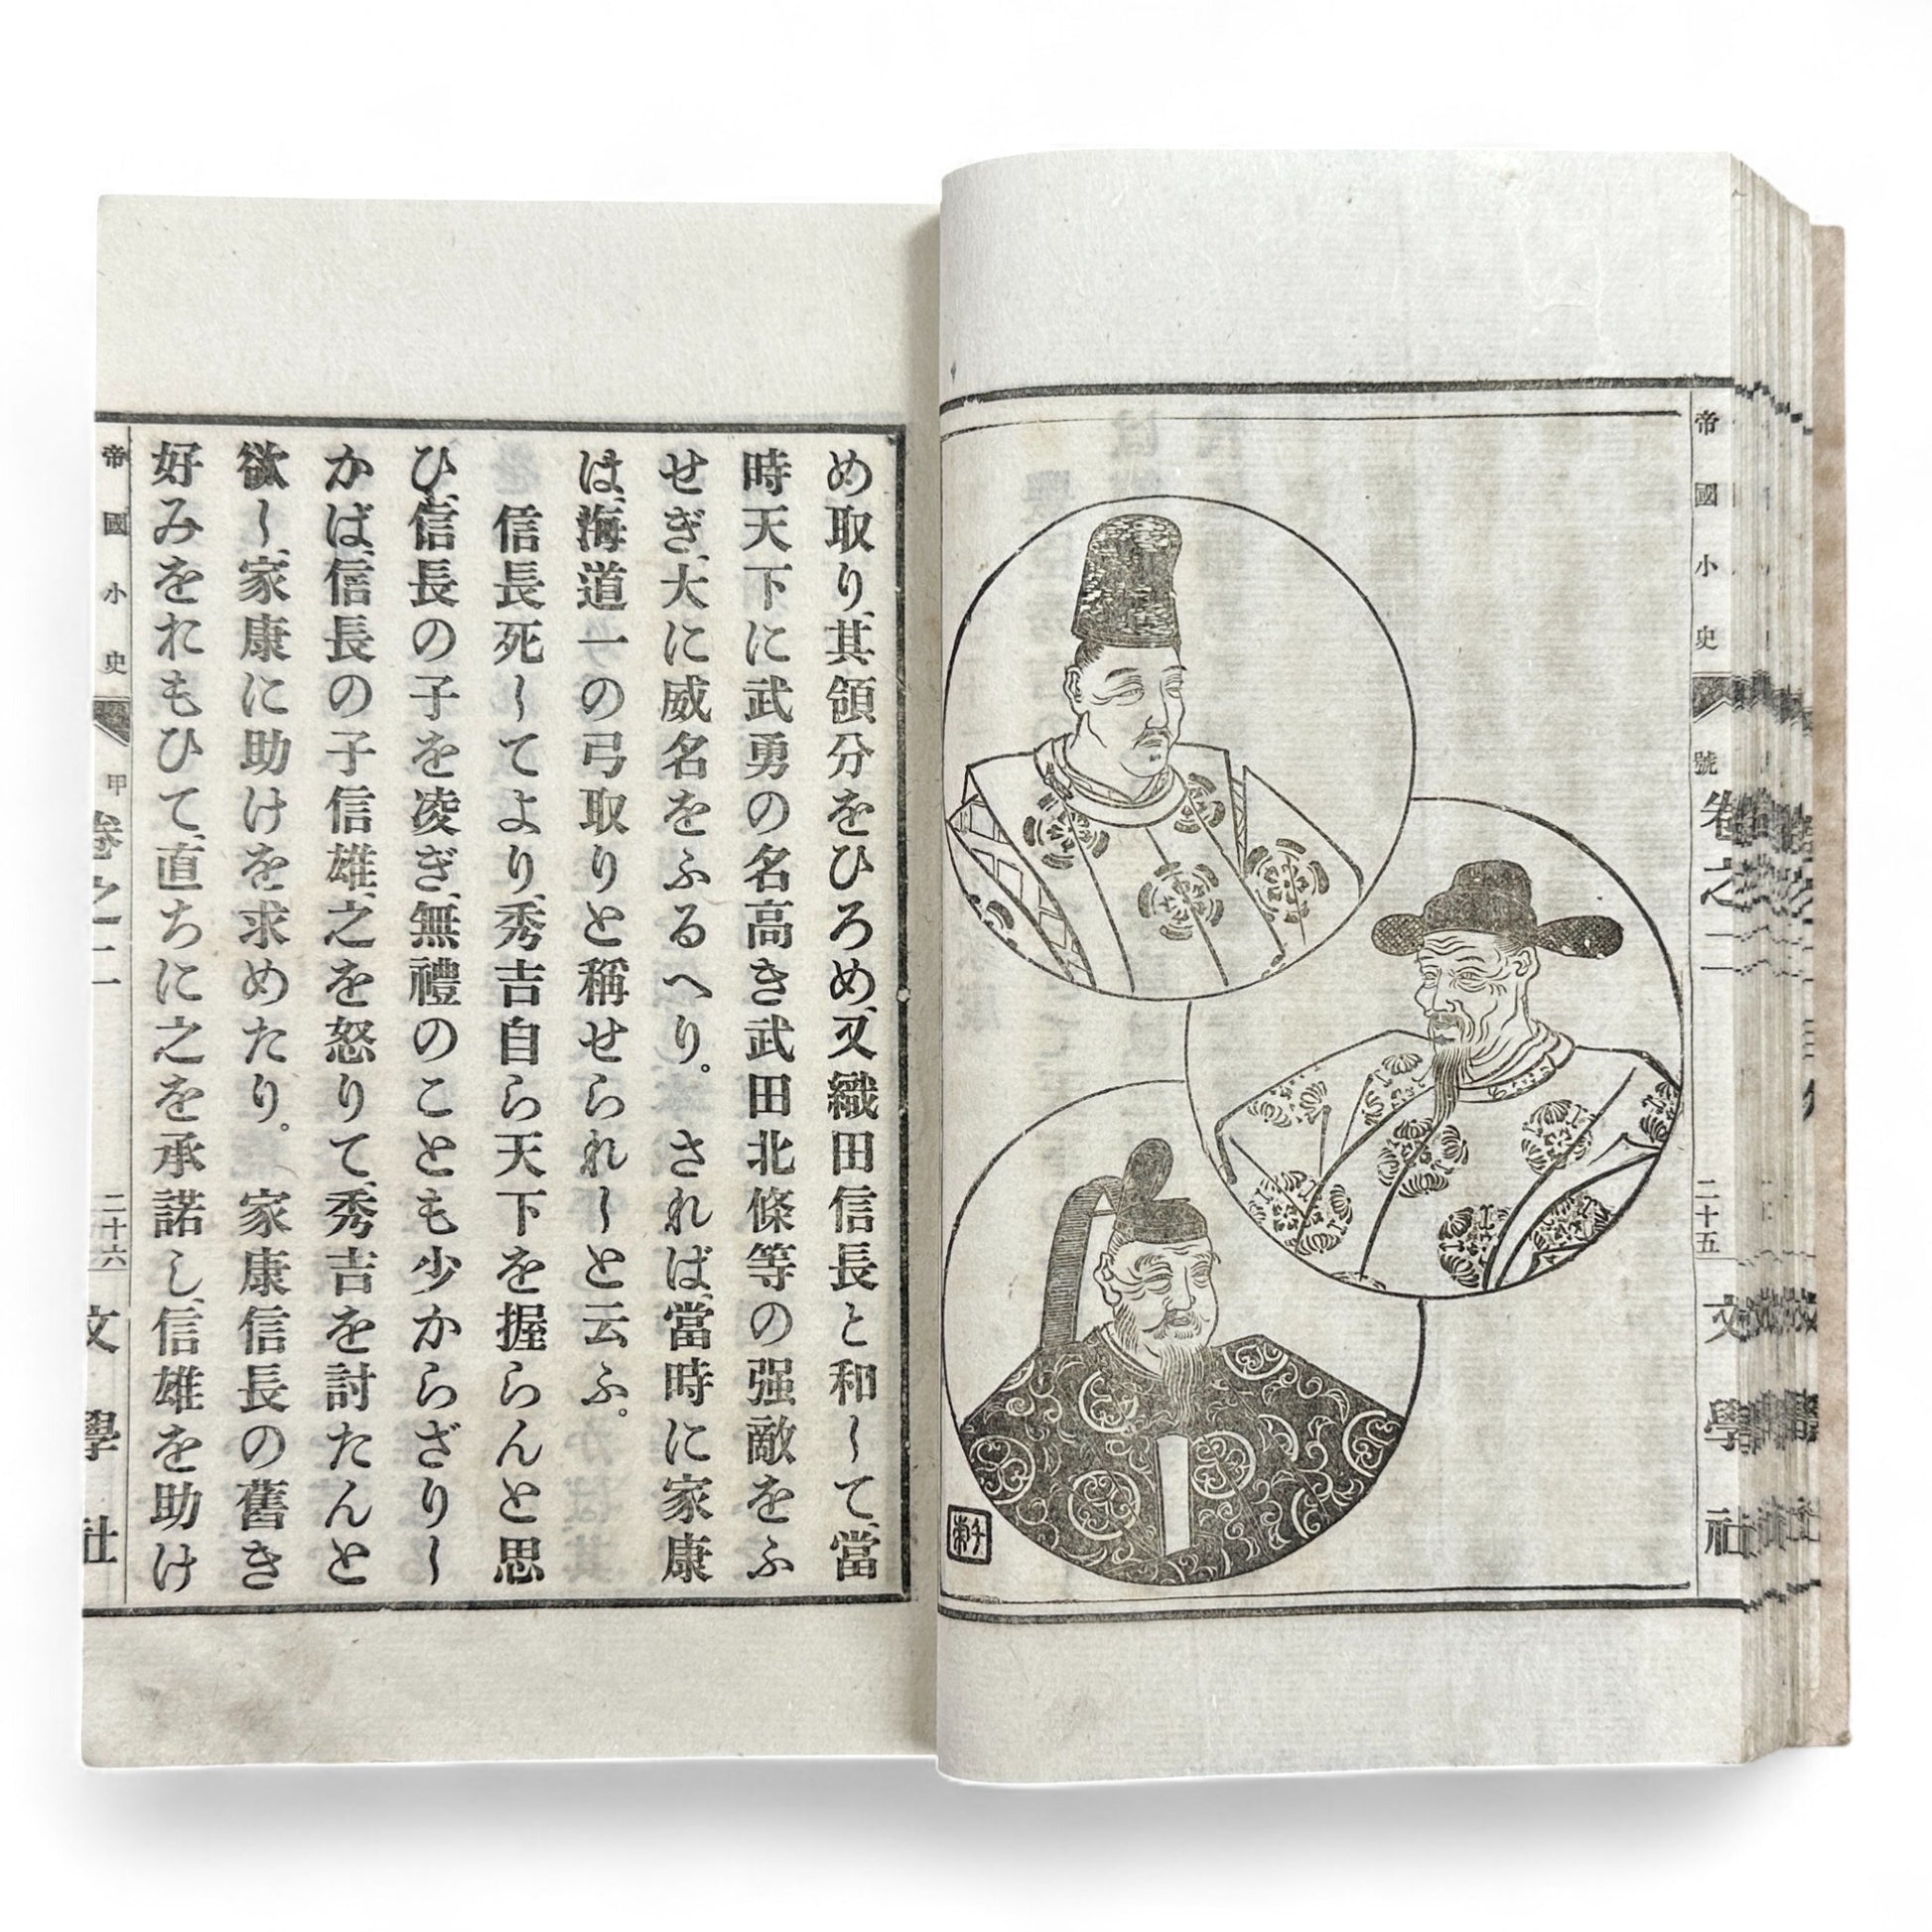 帝國小史
號
卷之二
二十五
文學社
め取り、其領分をひろめ、又織田信長と和して、當
時天下に武勇の名高き武田北條等の强敵をふ
せぎ、大に威名をふるへり。されば、當時に家康
は、海道一の弓取りと稱せられしと云ふ。
信長死してより、秀吉自ら天下を握らんと思
ひ、信長の子を凌ぎ、無禮のことも少からざりし
かば、信長の子信雄、之を怒りて、秀吉を討たんと
欲し、家康に助けを求めたり。家康信長の舊き
好みをれもひて、直ちに之を承諾し、信雄を助け
帝國小史
甲
卷之二
二十六
文學社